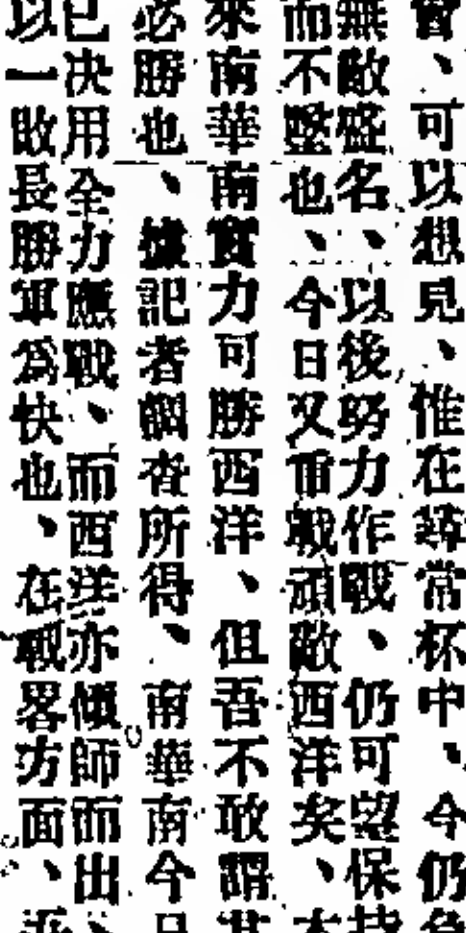 嘗、可以想見、惟在尋常杯中、今仍
無敵盛名、以後努力作戰、仍可望保持
而不墜也、今日又重戰頑敵西洋矣、本
來南華南實力可勝西洋、但吾不敢謂其
必勝也、據記者調查所得、南華南今日
已決用全力應戰、而西洋亦傾師而出、
以一敗長勝軍為快也、在戰畧方面、